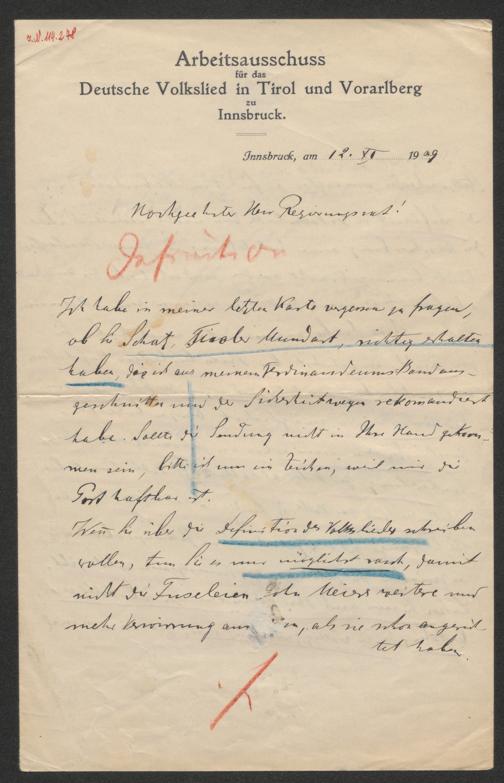 Z.N. 119.278
Arbeitsausschuss
für das
Deutsche Volkslied in Tirol und Vorarlberg
zu
Innsbruck.
Innsbruck, am 12. VI 1909
Hochgeehrter Herr Regierungsrat!
Definition
Ich habe in meiner letzten Karte vergessen zu fragen,
ob Sie Schatz, Tiroler Mundart, richtig erhalten
haben, das ich aus meinem Ferdinandeums Band aus-
geschnitten und der Sicherheit wegen rekomandiert
habe. Sollte die Sendung nicht in Ihre Hand gekom-
men sein, bitte ich um ein Zeichen, weil mir die
Post haftbar ist.
Wenn Sie über die Definition des Volksliedes schreiben
wollen, tun Sie es nur möglichst rasch, damit
nicht die Faseleien John Meiers weitere und
mehr Verwirrung als sie schon angerich-
tet haben.